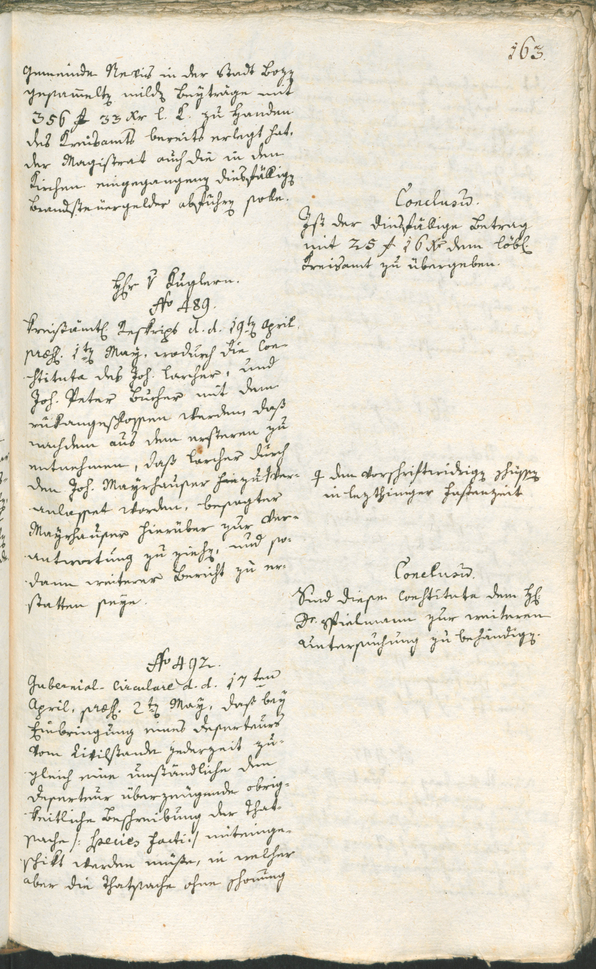 163.
Gemeinde Revis in der Stadt Boz̅
gesam̅elte milde Beyträge mit
356 f 33 xr l. K. zu Handen
des Kreisamts bereits erlegt hat,
der Magistrat auch die in den
Kirchen eingegangene diesfällige
Brandsteuergelder abführen solle.
Conclusum.
Ist der diesfällige Betrag
mit 25 f 16 xr dem löbl.
Kreisamt zu übergeben.
Hr v Kuglern.
No 489.
Kreisämtl. Reskript d. d. 19ten April,
præs. 1ten May, wodurch die Con-
stituta des Joh. Larcher, und
Joh. Peter Bucher mit dem
rükangeschlossen werden, daß
nachdem aus dem ersteren zu
entnehmen, daß Larcher durch
den Joh. Mayrhauser hiezu ver-
anlasset worden, besagter
Mayrhauser hierüber zur Ver-
antwortung zu ziehen, und so-
dann weiterer Bericht zu er-
statten seye.
dem vorschriftwidrigen
in letzthiniger Fastenzeit
Conclusum.
Sind diese Constituta dem H
Dr. Stielmann zur weiteren
Untersuchung zu behändigen.
No 492.
Gubernial-Circulare d. d. 17ten
April, præs. 2ten May, daß bey
Einbringung eines Deserteurs
vom Civilstande jederzeit zu-
gleich eine umständliche den
Deserteur überzeugende obrig-
keitliche Beschreibung der That-
sache /: species facti :/ miteinge-
schikt werden müße, in welcher
aber die Thatsache ohne Schonung